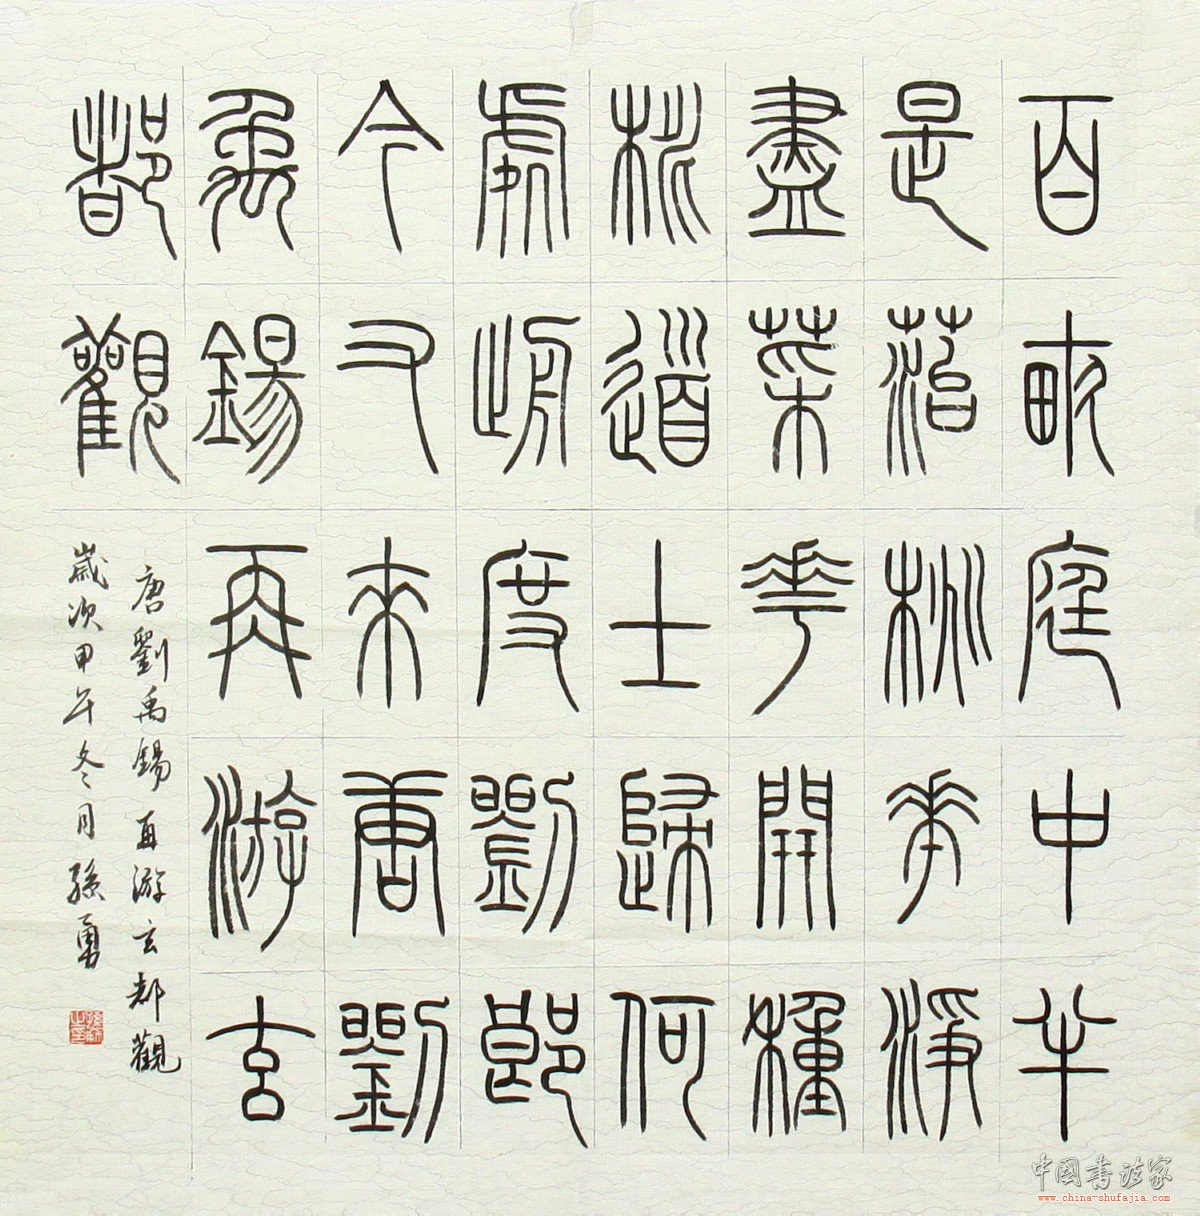 百畝庭中半
是菭桃華淨
盡菜華開種
桃道士歸何
處前度劉郎
今又來唐劉
禹錫再游玄
都觀
唐劉禹錫再游玄都觀
歲次甲午冬月孫勇
中國書法家
www.china-shufajia.com